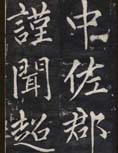 中佐郡
謹聞超